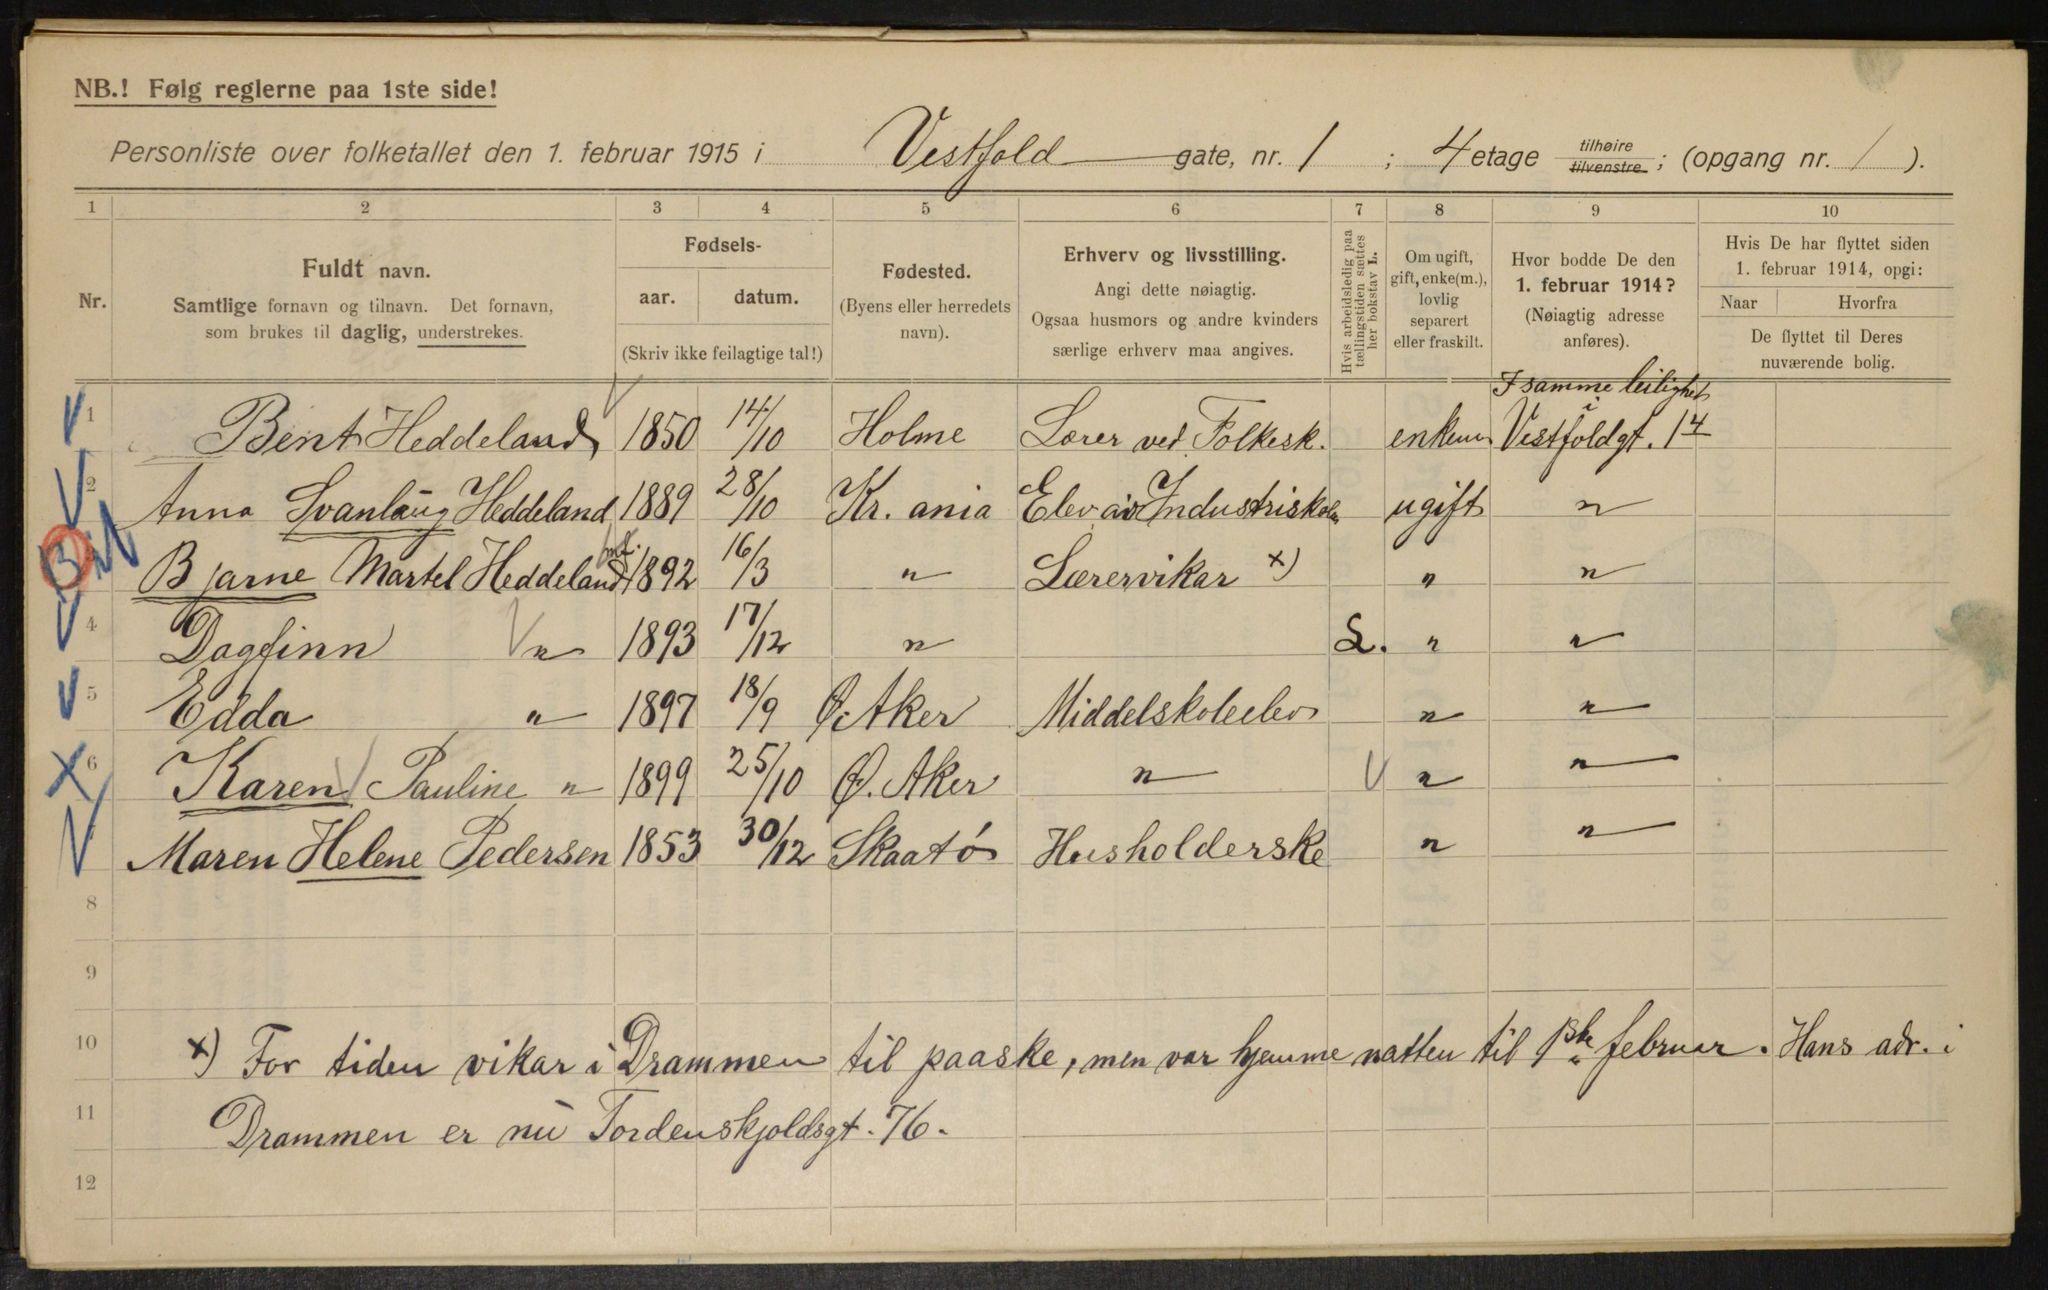 NB.! Følg reglerne paa 1ste side!
Personliste over folketallet den 1. februar 1915 i Vestfold gate, nr. 1 ; 4 etage tilhøire tilvenstre ; (opgang nr. 1 ).
1 2 3 4 5 6 7 8 9 10
Nr.
Fuldt navn.
Samtlige fornavn og tilnavn. Det fornavn,
som brukes til daglig, understrekes.
Fødsels-
aar. datum.
(Skriv ikke feilagtige tal!)
Fødested.
(Byens eller herredets
navn).
Erhverv og livsstilling.
Angi dette nøiagtig.
Ogsaa husmors og andre kvinders
særlige erhverv maa angives.
Hvis arbeidsledig paa
tællingstiden sættes
her bokstav L.
Om ugift,
gift, enke(m.),
lovlig
separert
eller fraskilt.
Hvor bodde De den
1. februar 1914?
(Nøiagtig adresse
anføres).
Hvis De har flyttet siden
1. februar 1914, opgi:
Naar Hvorfra
De flyttet til Deres
nuværende bolig.
I samme leilighet
i
1 Bent Heddeland 1850 14/10 Holme Lærer ved Folkesk. enkem Vestfoldgt. 1 4
2 Anna Svanlaug Heddeland 1889 28/10 Kr.ania Elev av Industriskolen ugift "
3 Bjarne Martel Heddeland mf. 1892 16/3 " Lærervikar x) " "
4 Dagfinn " 1893 17/12 " L. " "
5 Edda " 1897 18/9 Ø. Aker Middelskoleelev " "
6 Karen Pauline " 1899 25/10 Ø. Aker " " "
Maren Helene Pedersen 1853 30/12 Skaatø Husholderske " "
8
9
10 x) For tiden vikar i Drammen til paaske, men var hjemme natten til 1ste februar. Hans adr. i
11 Drammen er nu Tordenskjoldsgt. 76.
12